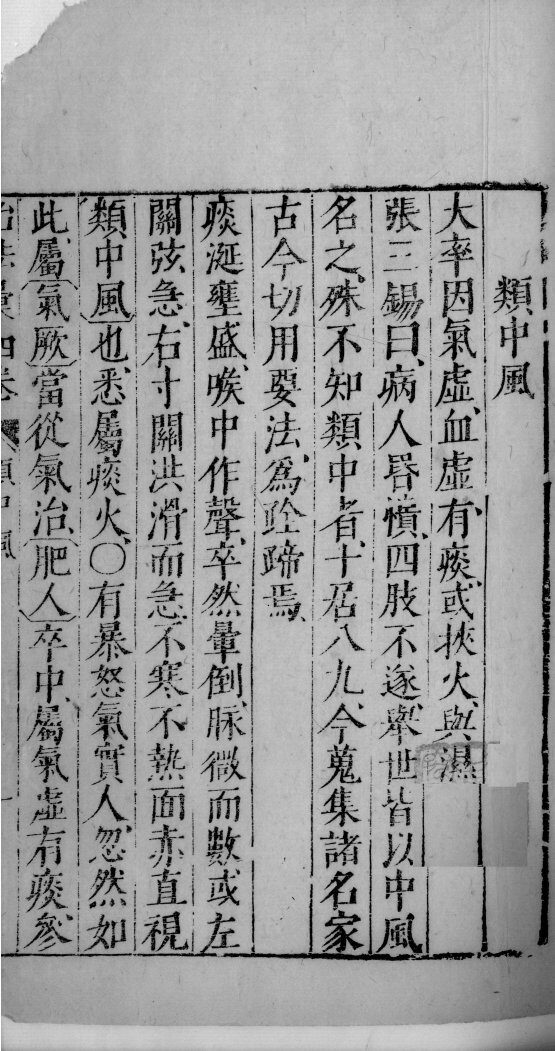 類中風
大率因氣虛血虛有痰或挾火與濕
張三錫曰病人昏憒四肢不遂舉世皆以中風
名之殊不知類中者十居八九今蒐集諸名家
古今切用要法爲詮蹄焉
痰涎壅盛喉中作聲卒然暈倒脉微而數或左
關弦急右寸關洪滑而急不寒不熱面赤直視
類中風也悉屬痰火〇有暴怒氣實人忽然如
此屬氣厥當從氣治肥人卒中屬氣虛有痰參
治法彙四卷 類中風 一